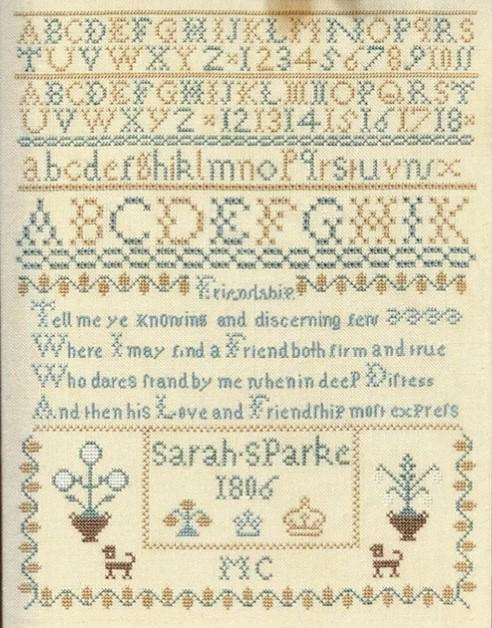 ABCDEFGHIJKLMNOPQRS
TUVWXYZ×1234567891011
ABCDEFGHIJKLMNOPQRST
UVWXYZ×12131415161718×
abcdefghiklmnopqrstuvwx
ABCDEFGHIK
Friendship
Tell me ye knowing and discerning few
Where I may find a Friend both firm and true
Who dares ſtand by me when in deep Diſtess
And then his Love and Friendſhip moſt expreſs
Sarah·SParke
1806
MC